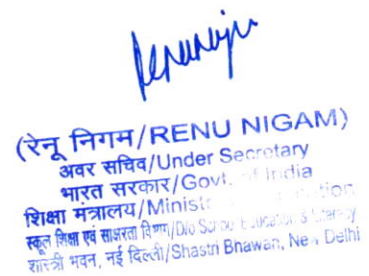 (रेनू निगम/RENU NIGAM)
अवर सचिव/Under Secretary
भारत सरकार/Govt. of India
शिक्षा मंत्रालय/Ministry
स्कूल शिक्षा एवं साक्षरता विभाग/D/o School Education & Literacy
शास्त्री भवन, नई दिल्ली/Shastri Bhawan, New Delhi